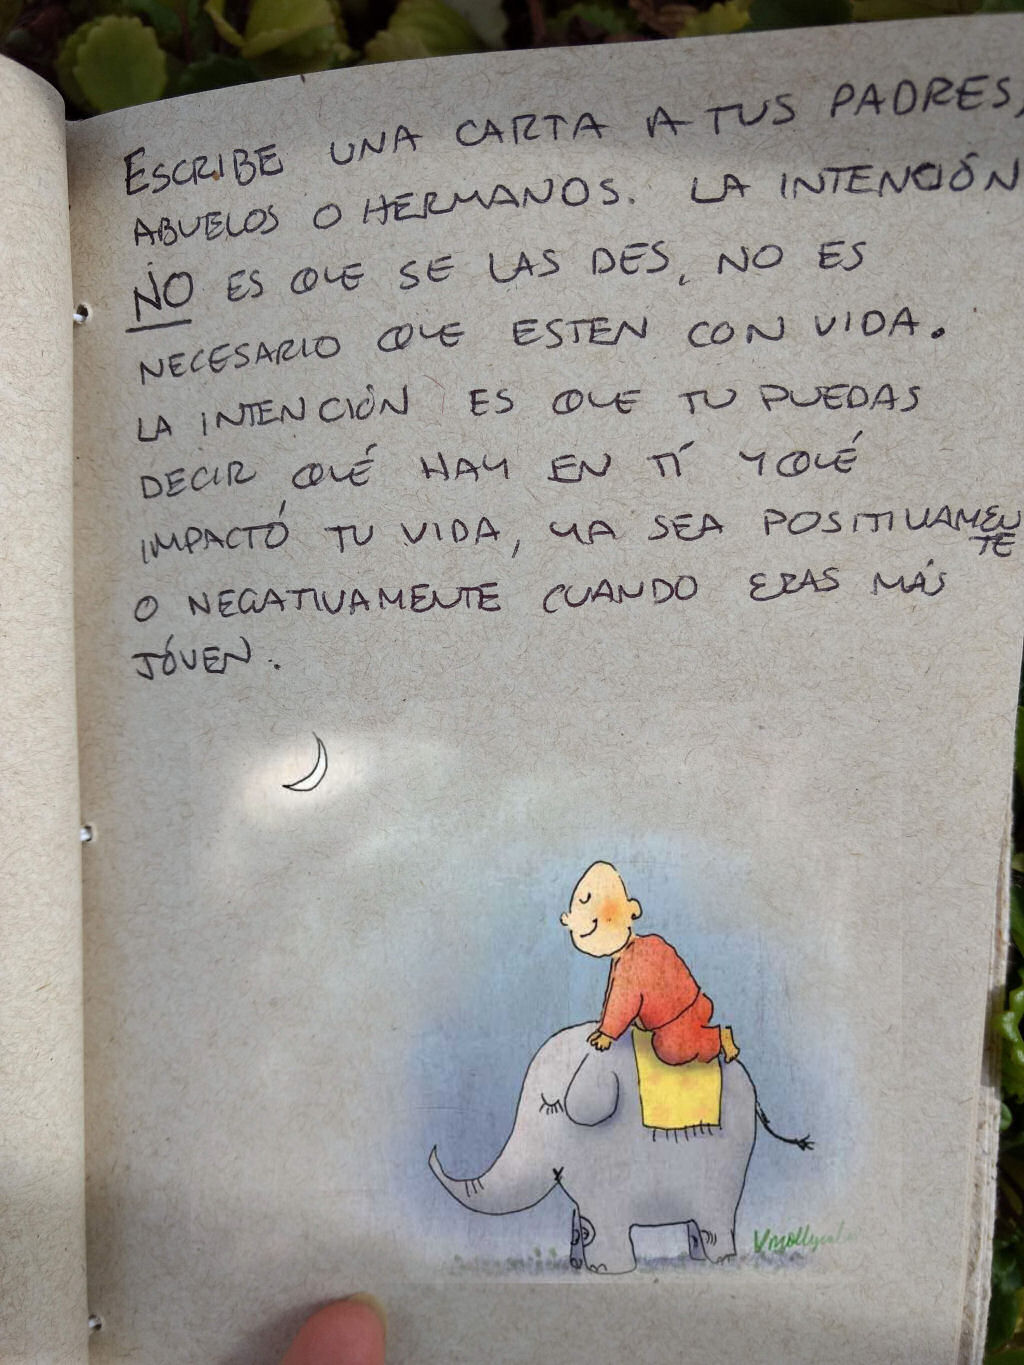 ESCRIBE UNA CARTA A TUS PADRES,
ABUELOS O HERMANOS. LA INTENCIÓN
NO ES QUE SE LAS DES, NO ES
NECESARIO QUE ESTEN CON VIDA.
LA INTENCIÓN ES QUE TU PUEDAS
DECIR QUÉ HAY EN TÍ Y QUÉ
IMPACTÓ TU VIDA, YA SEA POSITIVAMEN
TE
O NEGATIVAMENTE CUANDO ERAS MÁS
JÓVEN.